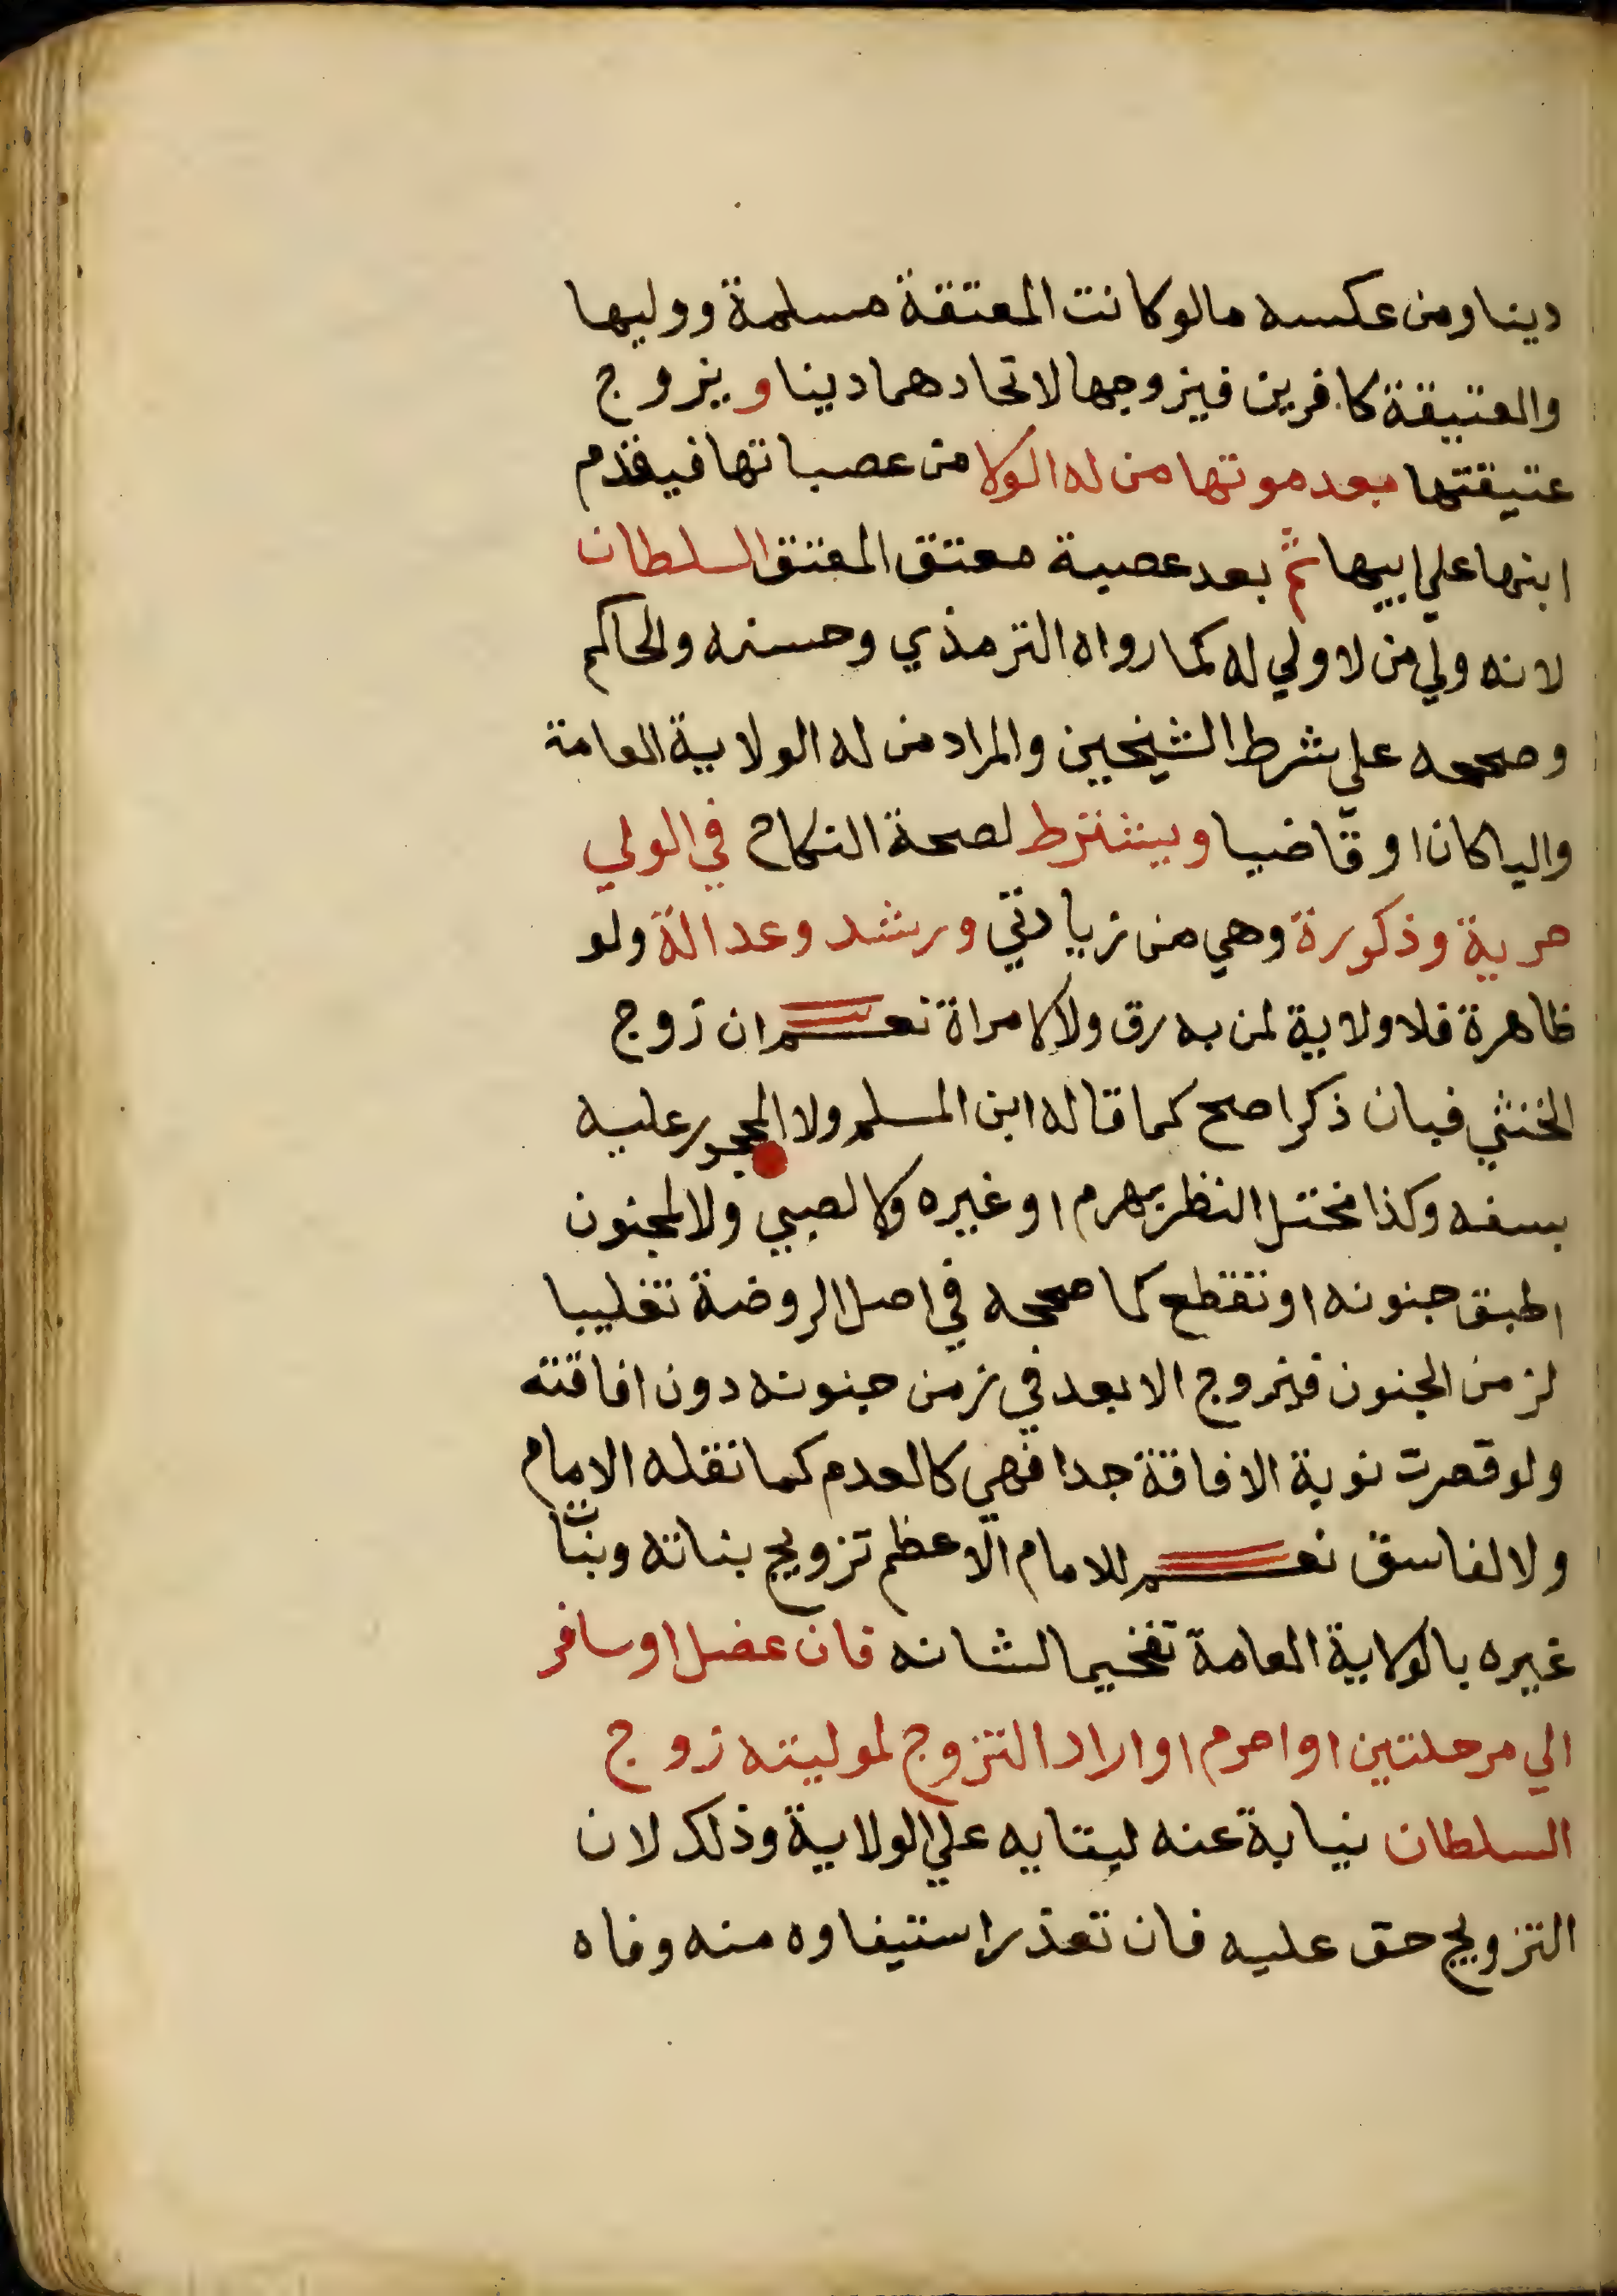 دينا ومن عكسه مالو كانت المعتقة مسلمة ووليها
والعتيقة كافرين فيزوجها لاتحادهما دينا ويزوج
عتيقتها بعد موتها من له الولا من عصباتها فيقدم
ابنها علي ابيها ثم بعد عصبة معتق المعتق السلطان
لانه ولي من لا ولي له كما رواه الترمذي وحسنه والحاكم
وصححه علي شرط الشيخين والمراد من له الولاية العامة
واليا كان او قاضيا ويشترط لصحة النكاح في الولي
حرية وذكورة وهي من زيادتي ورشد وعدالة ولو
ظاهرة فلا ولاية لمن به رق ولا لامراة نعم ان زوج
الخنثي فبان ذكرا صح كما قاله ابن المسلم ولا المحجور عليه
بسفه وكذا مختل النظر بهرم او غيره وكالصبي ولا لمجنون
اطبق جنونه او تقطع كما صححه في اصل الروضة تغليبا
لزمن الجنون فيزوج الابعد في زمن جنونه دون افاقته
ولو قصرت نوبة الافاقة جدا فهي كالعدم كما نقله الامام
ولا لفاسق نعم للامام الاعظم تزويج بناته وبنات
غيره بالولاية العامة تفخيما لشانه فان عضل او سافر
الي مرحلتين او احرم او اراد التزوج لموليته زوج
السلطان نيابة عنه لبقايه علي الولاية وذلك لان
التزويج حق عليه فان تعذر استيفاوه منه وفاه